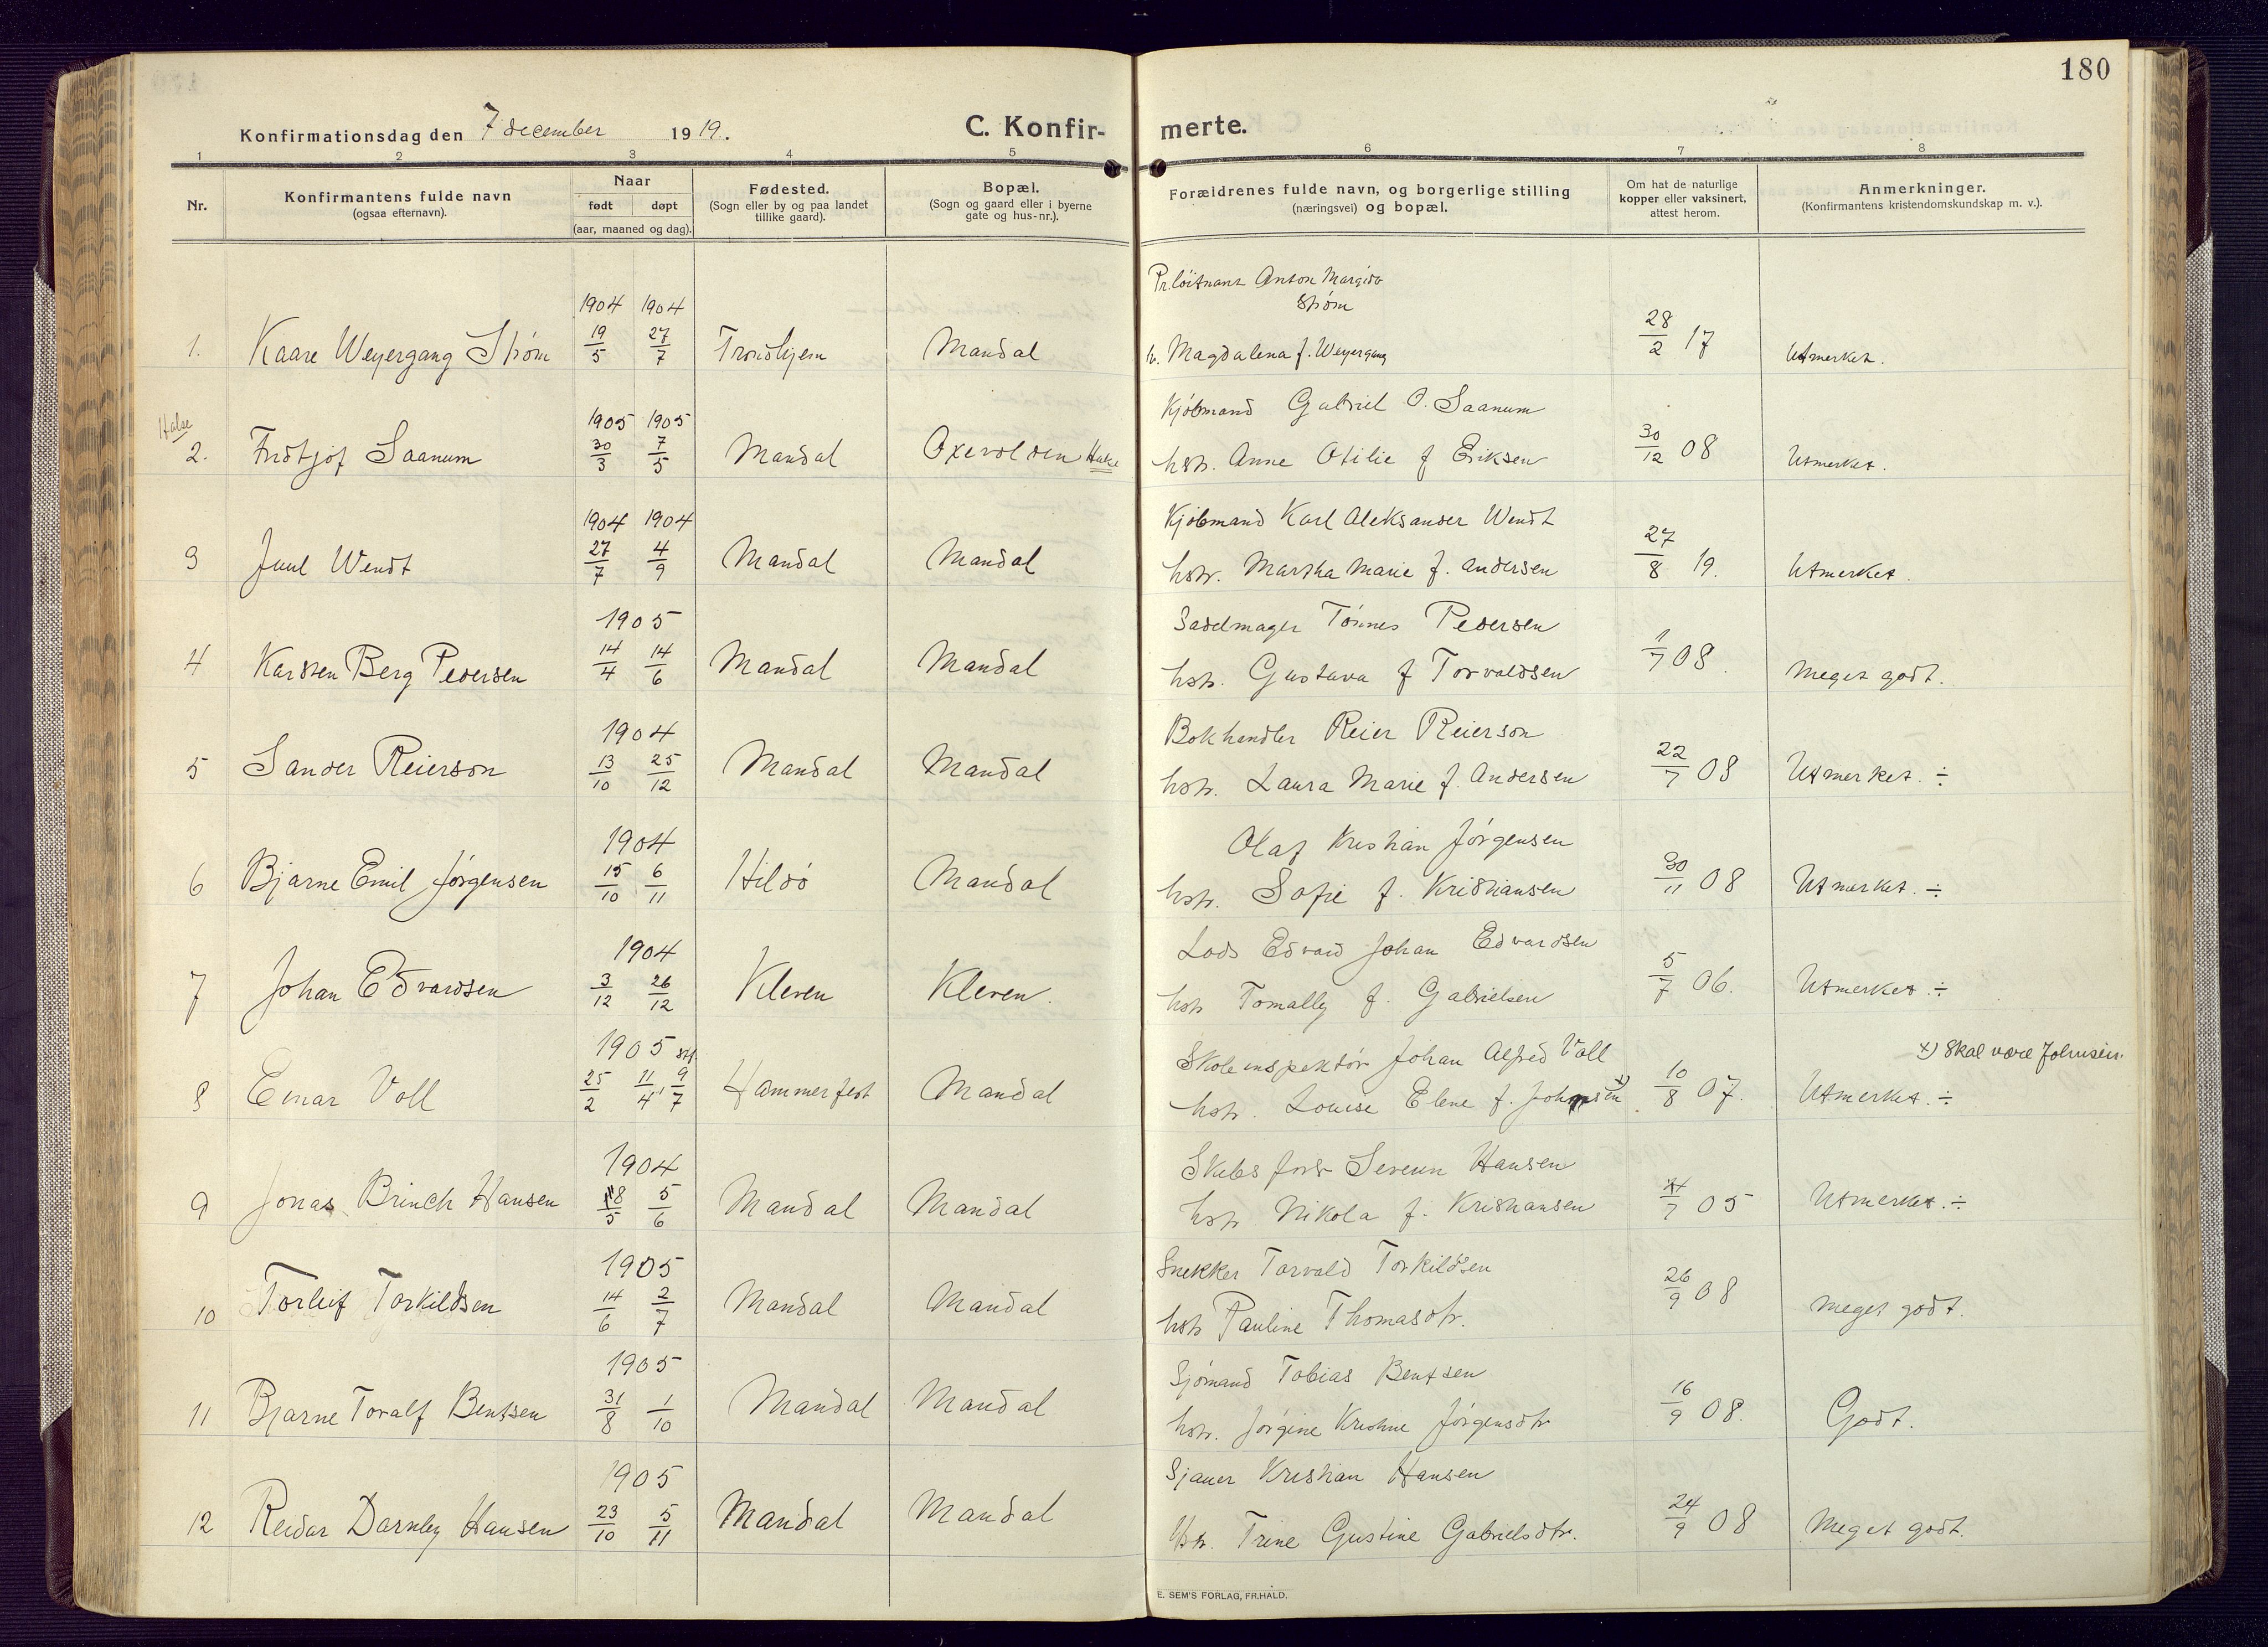 180
Konfirmationsdag den 7 december 1919.
C. Konfir-
merte.
1 2 3 4 5 6 7 8
Nr.
Konfirmantens fulde navn
(ogsaa efternavn).
Naar
født døpt
(aar, maaned og dag).
Fødested.
(Sogn eller by og paa landet
tillike gaard).
Bopæl.
(Sogn og gaard eller i byerne
gate og hus-nr.).
Foræidrenes fulde navn, og borgerlige stilling
(næringsvei) og bopæl.
Om hat de naturlige
kopper eller vaksinert,
attest herom.
Anmerkninger.
(Konfirmantens kristendomskundskap m. v.).
Pr.løitnant Anton Margido
Strøm
1904 1904
1. Kaare Weyergang Strøm 19/5 27/7 Trondhjem Mandal h. Magdalena f. Weyergang 28/2 17 Utmerket.
Halse 1905 1905 Kjøbmand Gabriel O. Saanum
2. Fridtjof Saanum 30/3 7/5 Mandal Oxevolden Halse hstr. Anne Otilie f Eriksen 30/12 08 Utmerket.
1904 1904 Kjøbmand Karl Aleksander Wendt
3 Juul Wendt 27/7 4/9 Mandal Mandal hstr. Martha Marie f. Andersen 27/8 19. Utmerket.
1905 Sadelmager Tönnes Pedersen
4 Karsten Berg Pedersen 14/4 14/6 Mandal Mandal hstr. Gustava f Torvaldsen 1/7 08. Meget godt.
1904 Bokhandler Reier Reierson
5 Sander Reierson 13/10 25/12 Mandal Mandal hstr. Laura Marie f. Andersen 22/7 08 Utmerket. ÷
1904 Olaf Kristian Jörgensen
6 Bjarne Emil Jörgensen 15/10 6/11 Hildö Mandal hstr. Sofie f. Kristiansen 30/11 08 Utmerket. ÷
1904 Lods Edvard Johan Edvardsen
7 Johan Edvardsen 3/12 26/12 Kleven Kleven. hstr Tomally f. Gabrielsen 5/7 06. Utmerket ÷
1905 stf. Skoleinspektör Johan Alfred Voll x) Skal være Johnsen.
8 Einar Voll 25/2 11/4 9/7 Hammerfest Mandal hstr. Louise Elene f. Johnsen x) 10/8 07. Utmerket. ÷
1904 Skibsförer Severin Hansen
9 Jonas Brinch Hansen 18/5 5/6 Mandal Mandal hstr Nikola f. Kristiansen /7 05 Utmerket. ÷
1905 Snekker Torvald Torkildsen
10 Torleif Torkildsen 14/6 2/7 Mandal Mandal hstr Pauline Thomasdtr. 26/9 08 Meget godt.
1905 Sjömand Tobias Bentsen
11 Bjarne Toralf Bentsen 31/8 1/10 Mandal Mandal hstr. Jörgine Kristine Jörgensdtr 16/9 08. Godt.
1905 Sjauer Kristian Hansen
12 Reidar Darnley Hansen 23/10 5/11 Mandal Mandal hstr. Trine Gustine Gabrielsdtr. 24/9 08 Meget godt.
E. SEM'S FORLAG, FR.HALD.